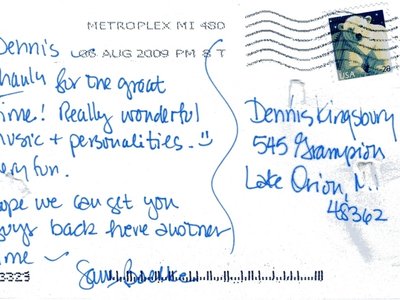 METROPLEX MI 480
06 AUG 2009 PM 8 T
USA 28
Dennis
for the great
time! Really wonderful
music + personalities. :)
very fun.
hope we can get you
guys back here another
time ~
Dennis Kingsbury
545 Grampion
Lake Orion, MI
48362
3323